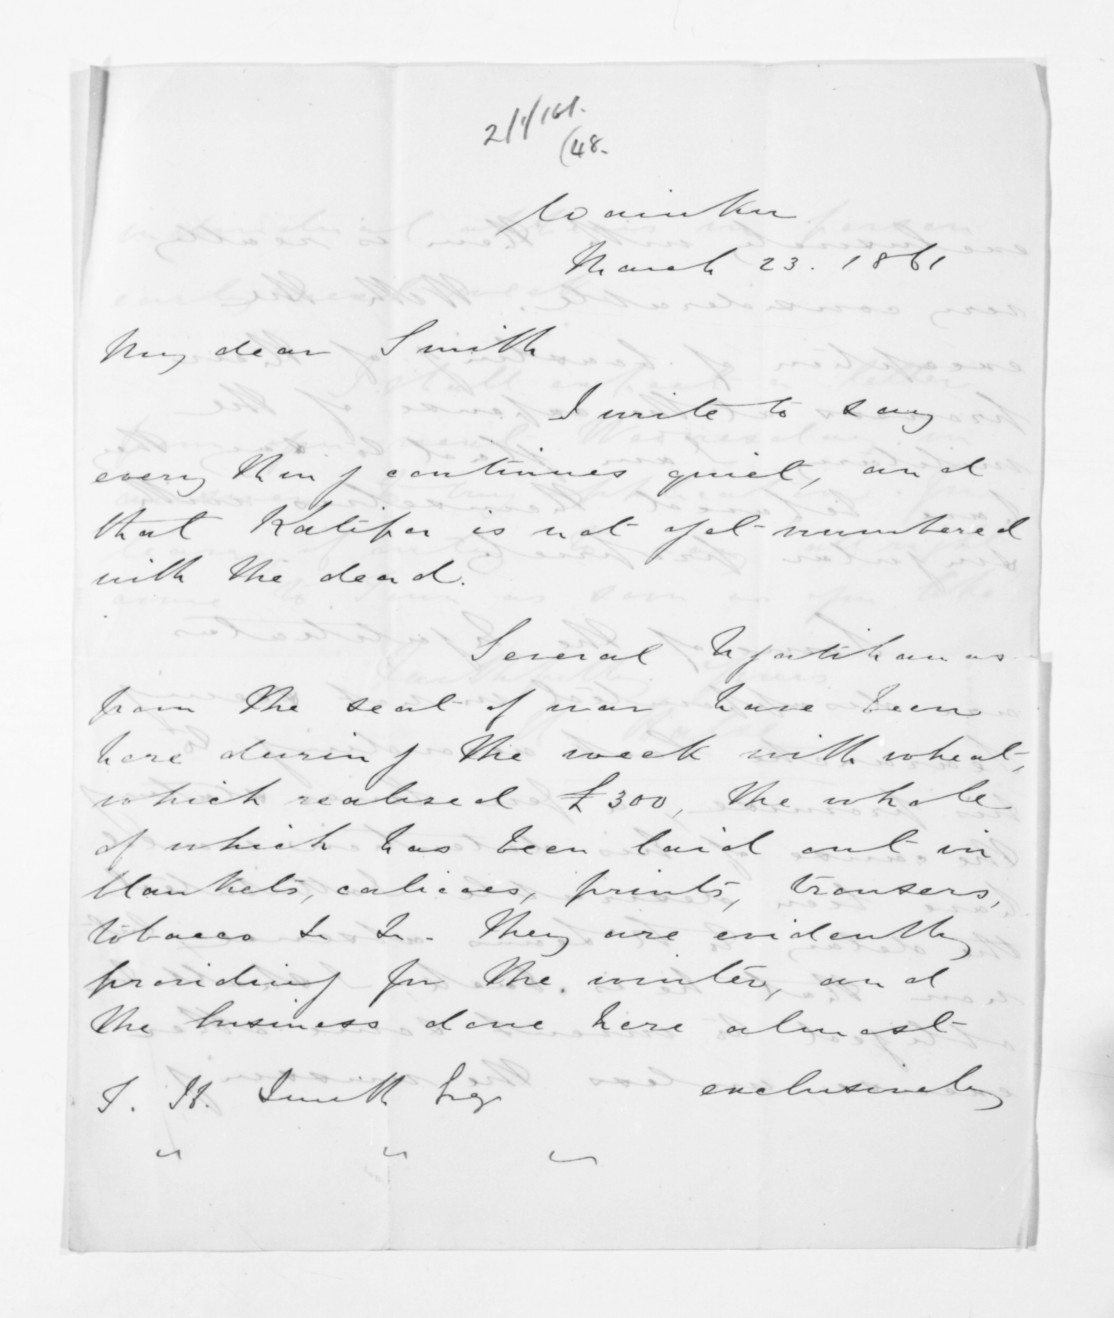 2/1/161.
(48.
Wainku
March 23. 1861
My dear Smith
I write to say
every thing continues quiet, and
that Katipa is not yet numbered
with the dead.
Several Ngatihauas
from the seat of war have been
here during the week with wheat,
which realised £300, the whole
of which has been laid out in
blankets, calicoes, prints, trousers,
tobacco &c &c. They are evidently
providing for the winter, and
the business done here almost
exclusively
T. H. Smith Esqr
" " "